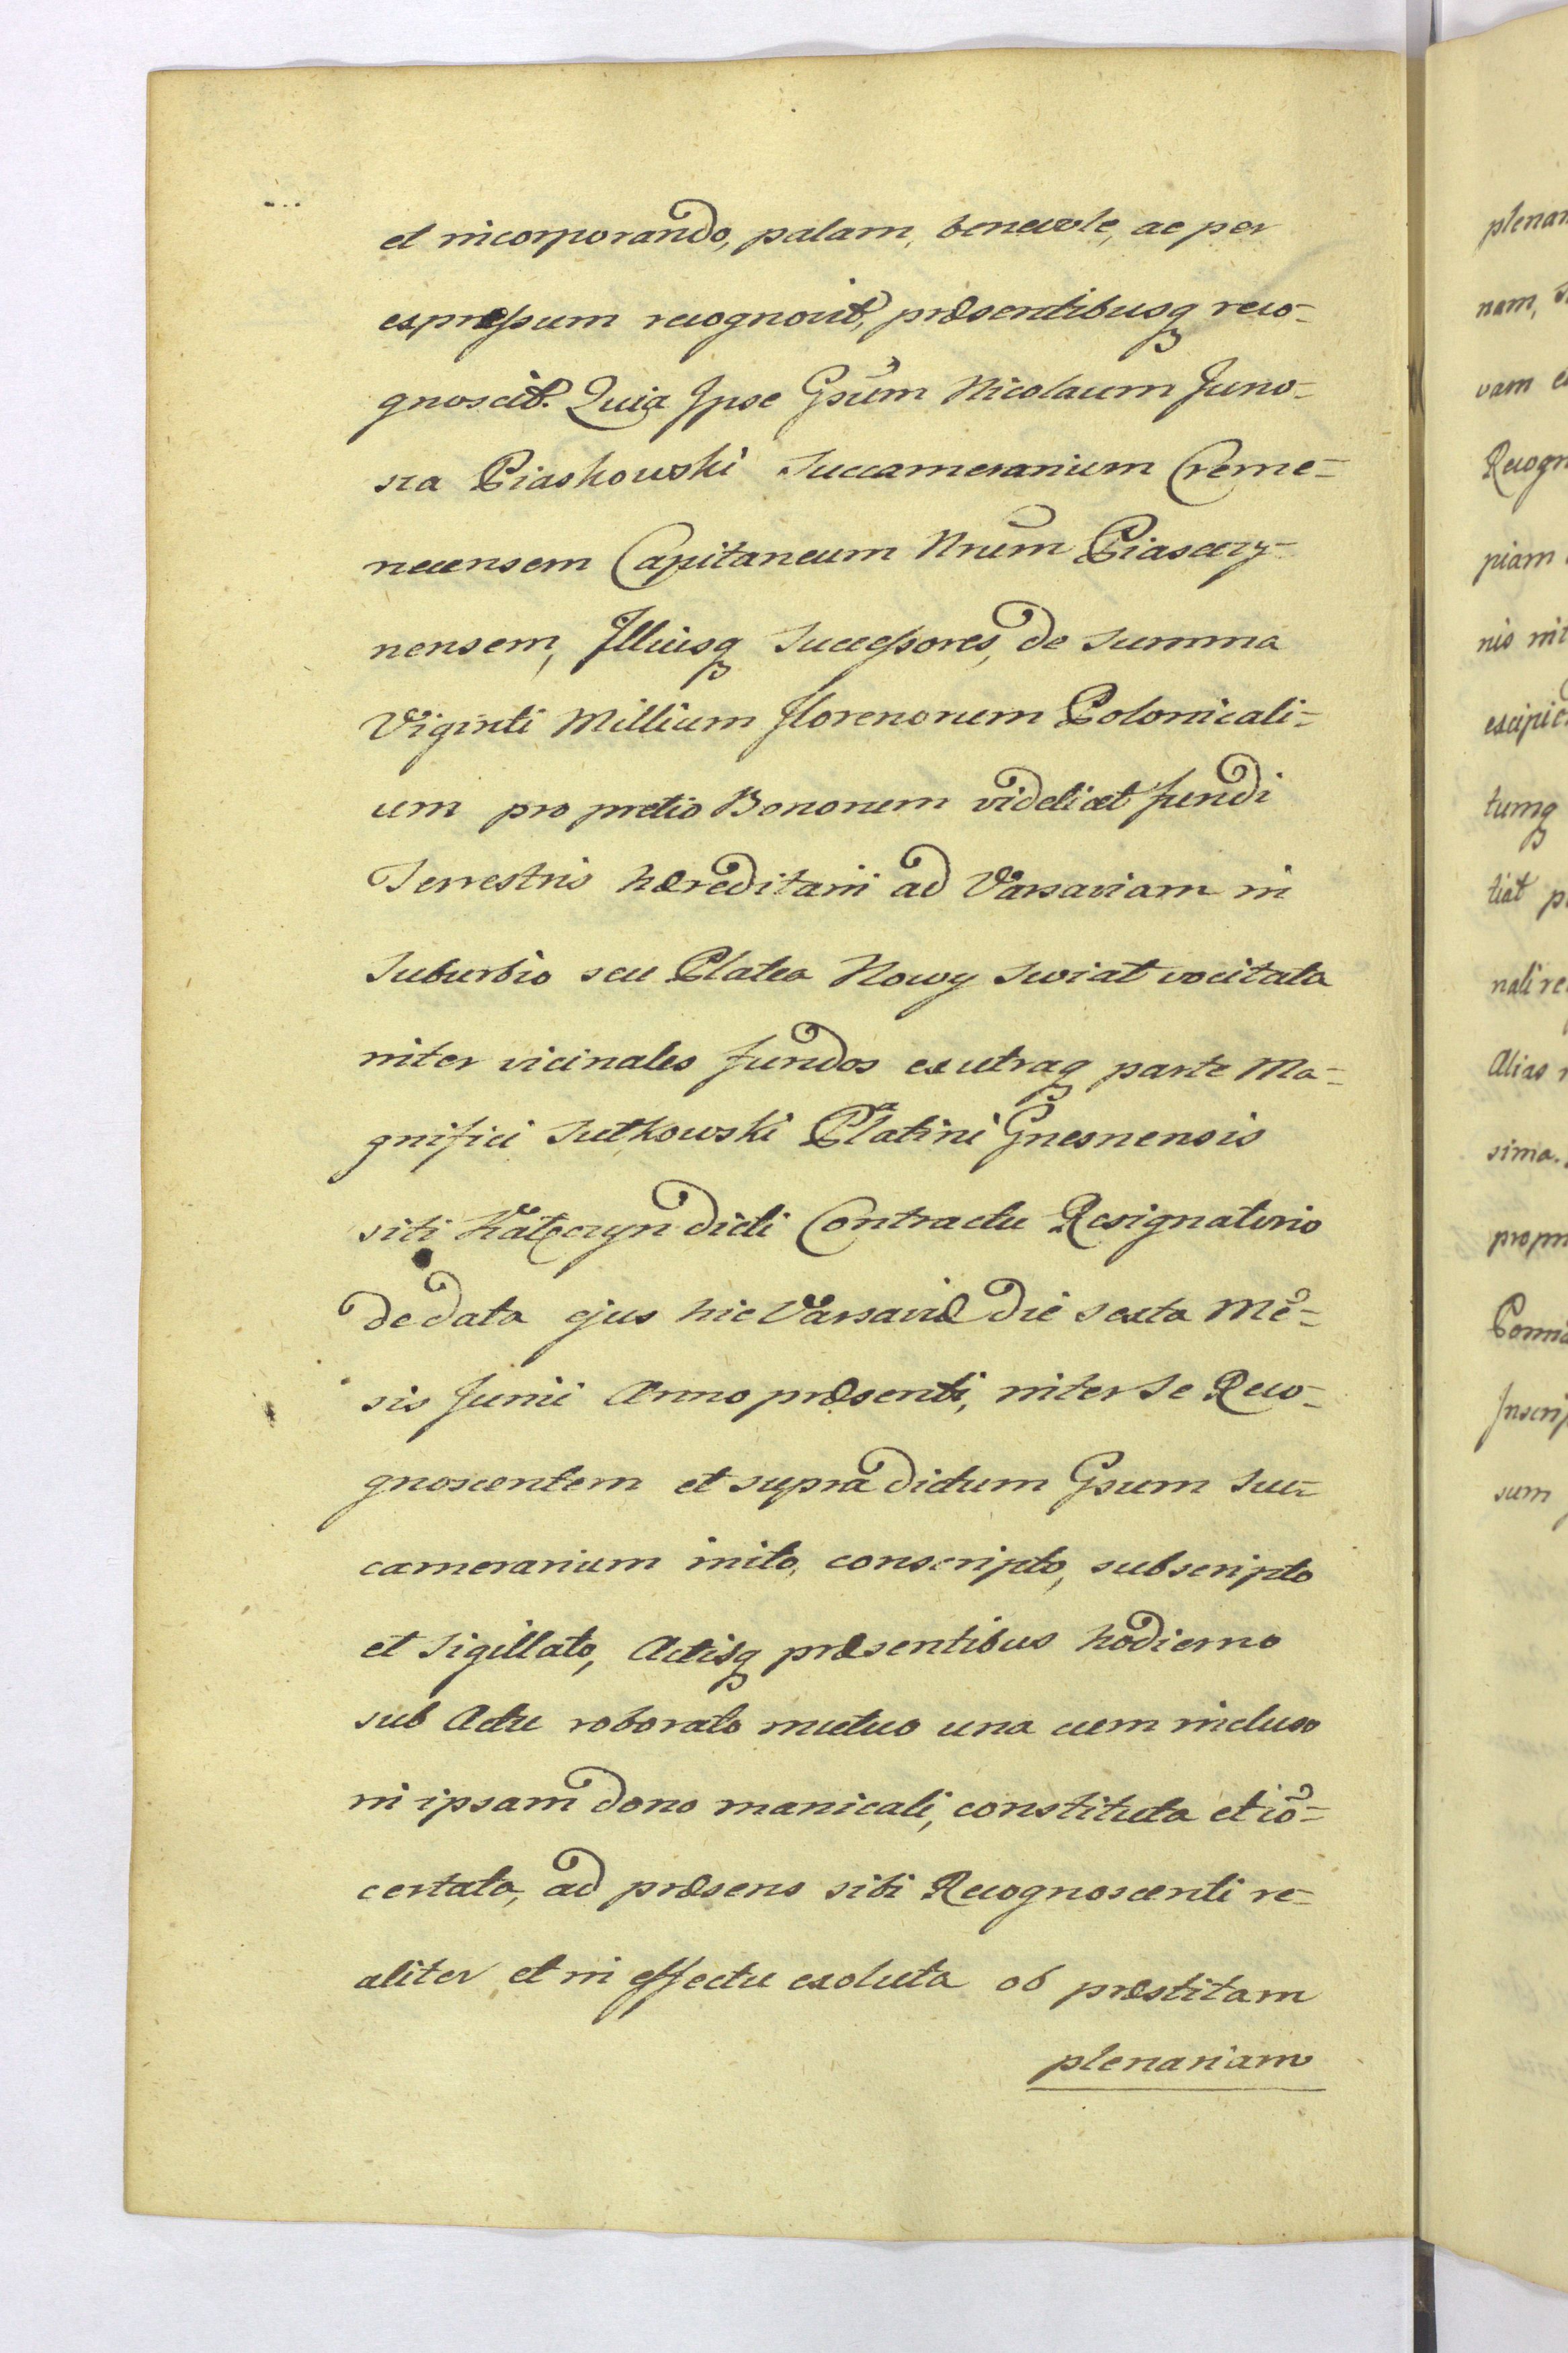 et incorporando, palam, benevole, ac per
expressum recognovit, præsentibusq reco-
gnoscit. Quia Ipse Gsum Nicolaum Juno-
sza Piaskowski Succamerarium Creme-
necensem Capitaneum Nrum Piaseczy-
nensem, Illiusq Successores, de Summa
Viginti Millium Florenorum Polonicali-
um pro pretio Bonorum videlicet fundi
Terrestris hæreditarii ad Varsaviam in
Suburbio seu Platea Nowy Swiat vocitata
inter vicinales fundos ex utraq parte Ma-
gnifici Sutkowski Platini Gnesnensis
siti Kałęczyn dicti Contractu Resignatorio
de data ejus hic Varsaviæ die sexta Me-
sis Junii Anno præsenti, inter Se Reco-
gnoscentem et supra dictum Gsum Suc-
camerarium inito, conscripto, subscripto
et Sigillato, Actisq præsentibus hodierno
sub Actu roborato mutuo una cum incluso
in ipsam dono manicali, constituta et co-
certata, ad præsens sibi Recognoscenti re-
aliter et in effectu exoluta ob præstitam
plenariam
plenar
nam,
vam
Recogn
piam
nis
excipie
tumq
tiat
nali re
Alias
sima.
propri
Inscrip
sum